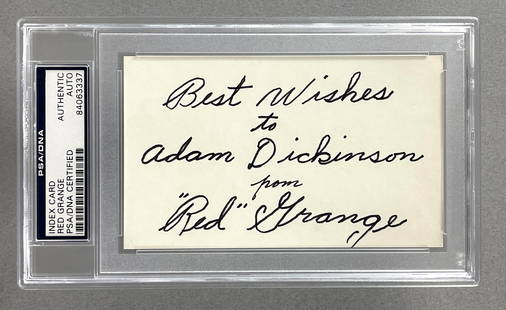 PSA/DNA
INDEX CARD
RED GRANGE
PSA/DNA CERTIFIED
AUTHENTIC
AUTO
84063337
Best Wishes
to
Adam Dickinson
from
"Red" Grange